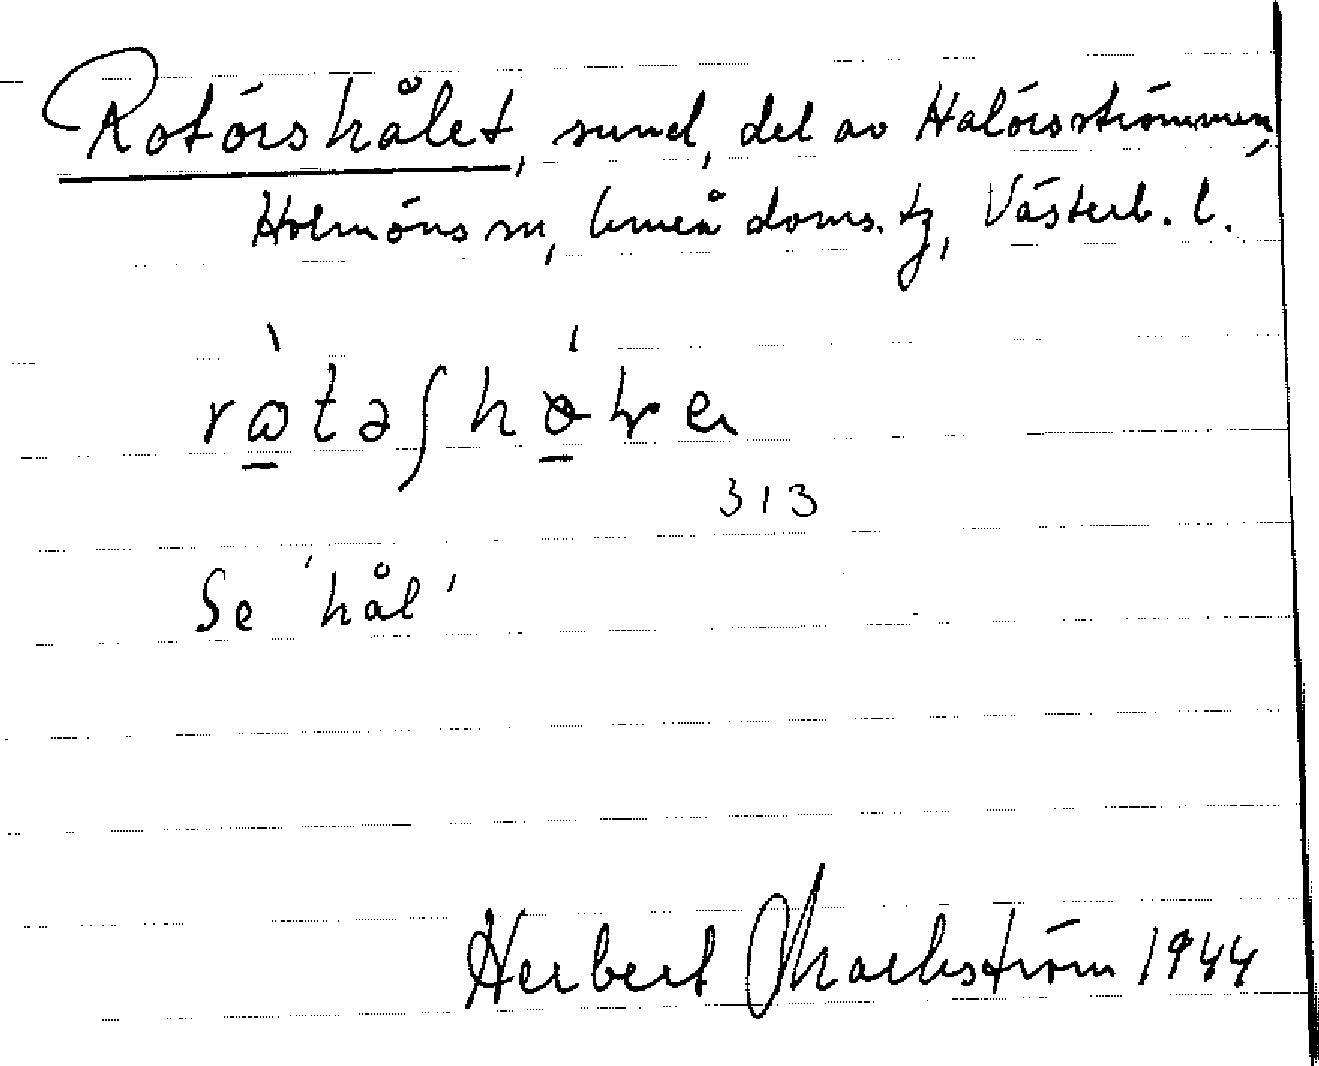 Rotörshålet, sund, del av Halörsströmmen,
Holmöns sn, Umeå doms. tg, Västerb. l.
313
Se 'hål'
Herbert Markström 1944